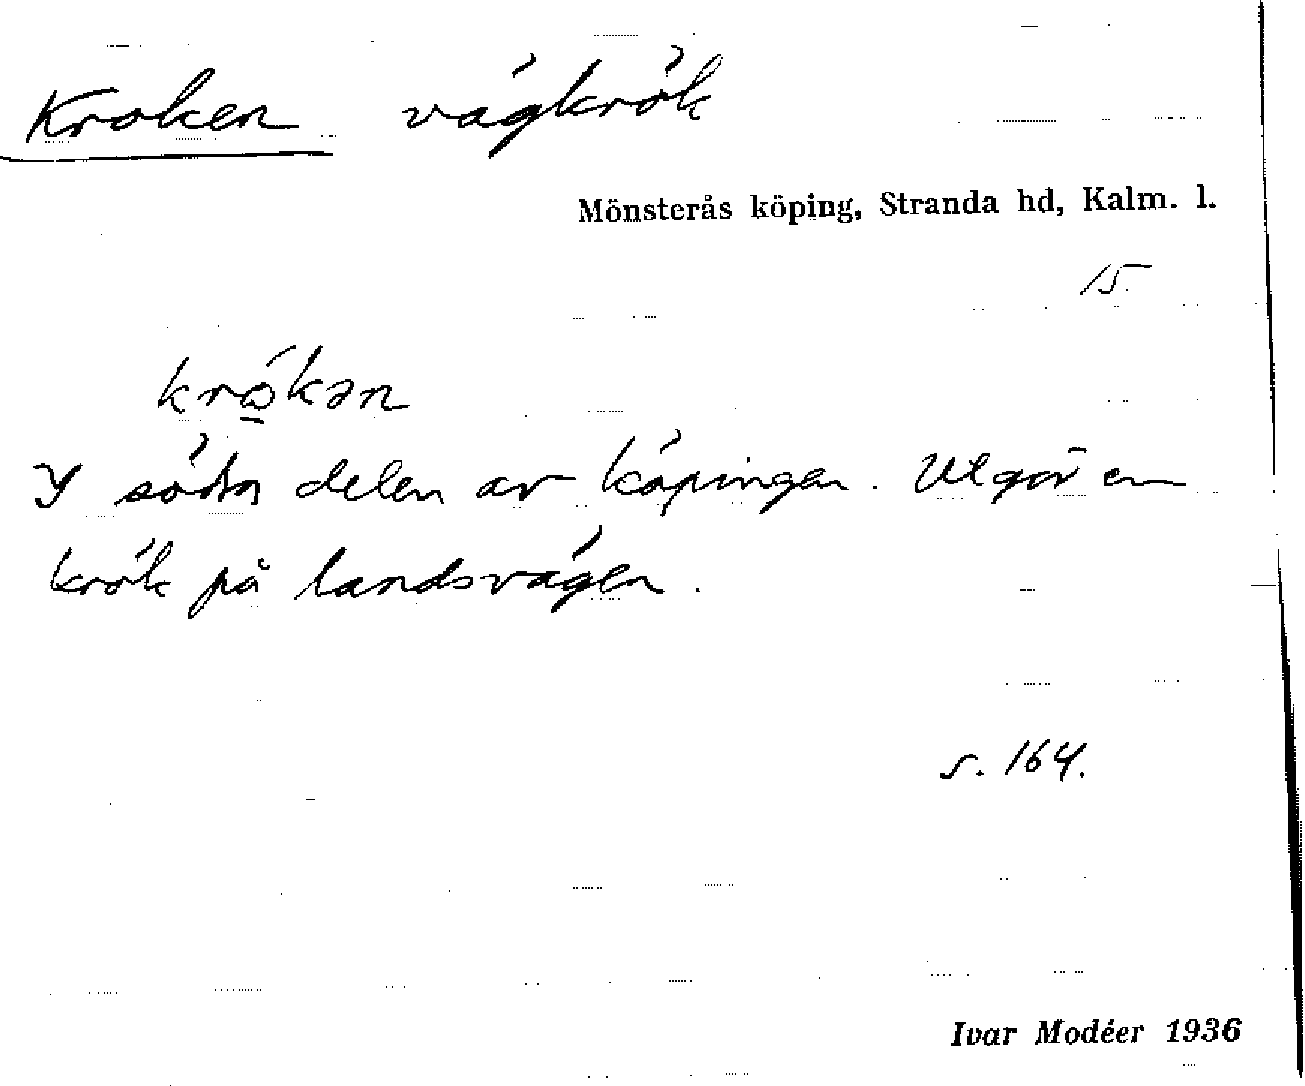 Kroken vägkrök
Mönsterås köping, Stranda hd, Kalm. l.
15.
krǫ́kən
I södra delen av köpingen. Utgör en
krök på landsvägen.
s. 164.
Ivar Modéer 1936